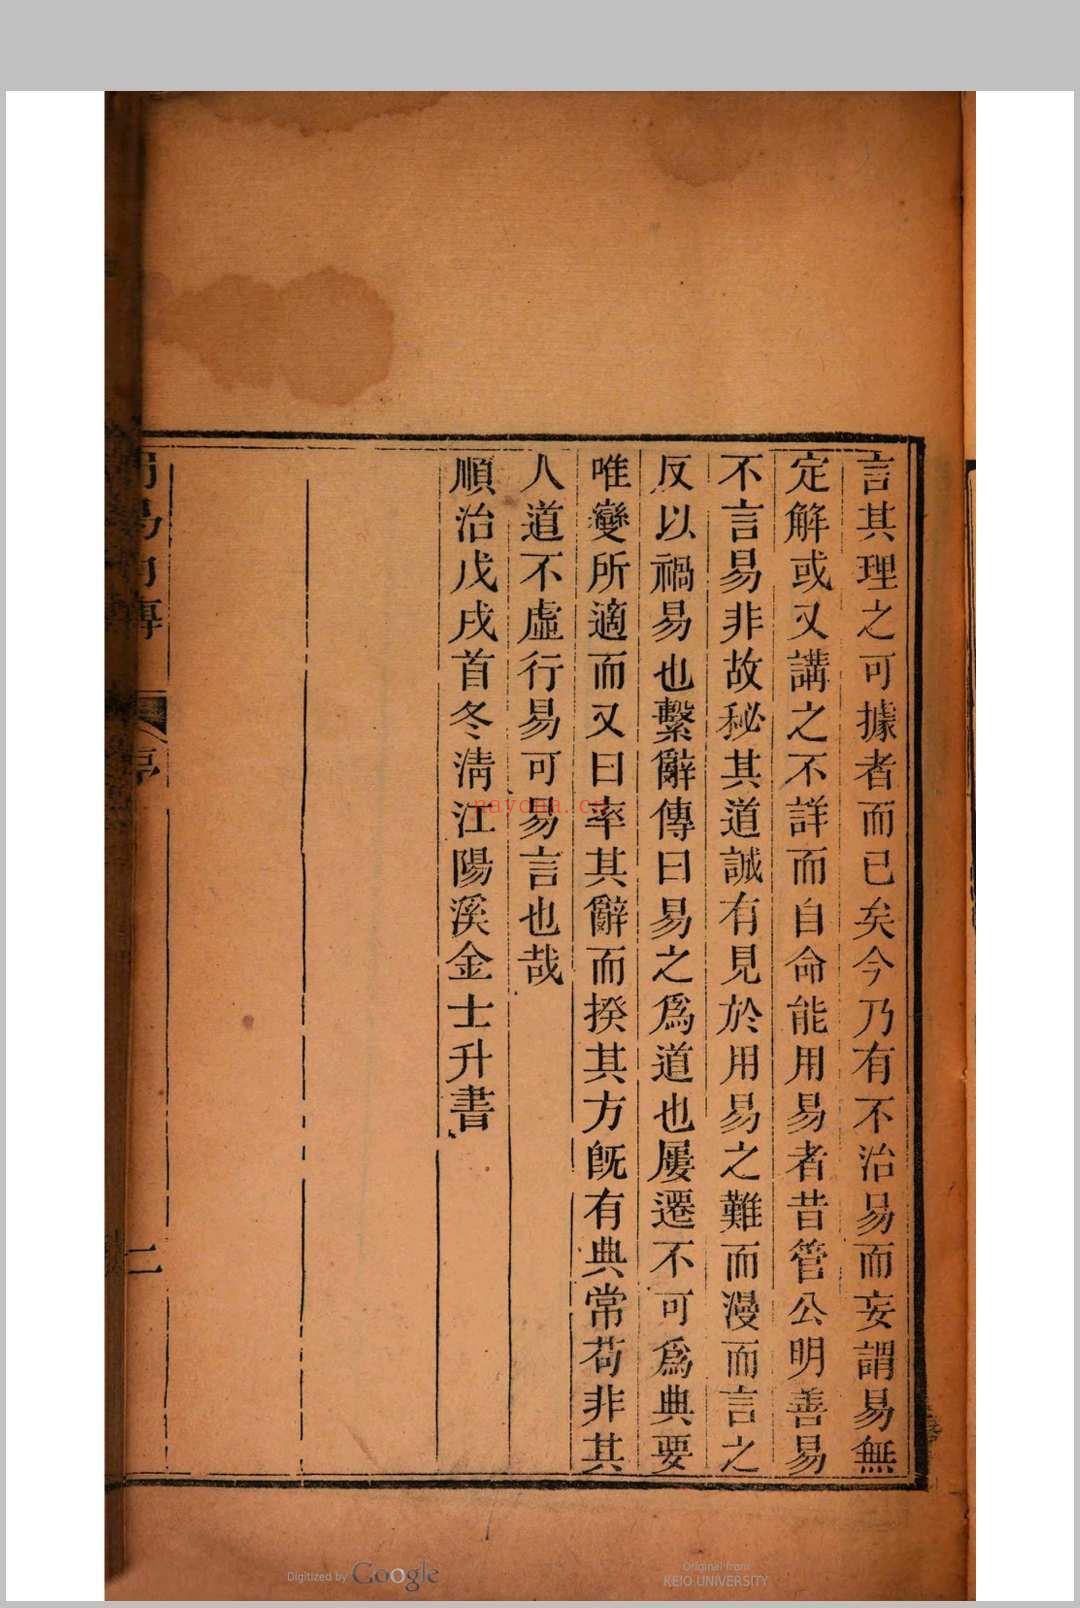 言其理之可據者而已矣今乃有不治易而妄謂易無
定解或又講之不詳而自命能用易者昔管公明善易
不言易非故秘其道誠有見於用易之難而漫而言之
反以禍易也繫辭傳曰易之爲道也屢遷不可爲典要
唯變所適而又曰率其辭而揆其方旣有典常苟非其
人道不虛行易可易言也哉
順治戊戌首冬淸江陽溪金士升書
易內傳
序
二
nayona.cn
Digitized by Google
Original from
KEIO UNIVERSITY